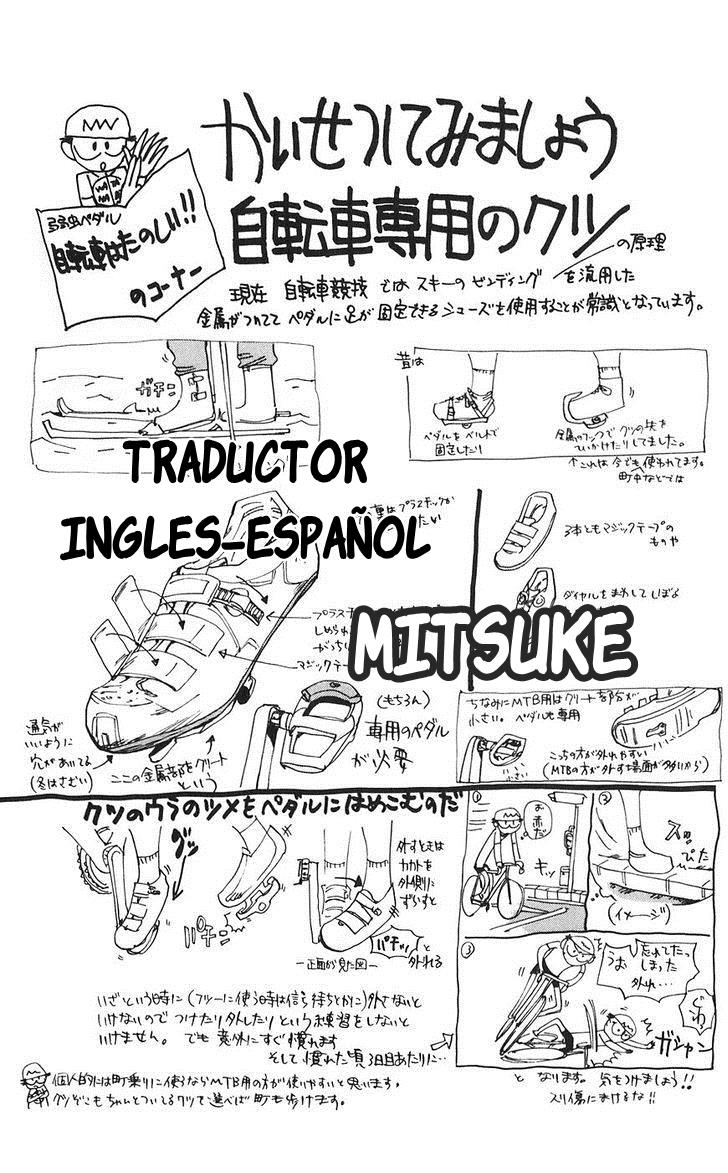 かいせつしてみましょう
自転車専用のクツ
の原理
弱虫ペダル
自転車はたのしい!!
のコーナー
現在 自転車競技ではスキーのビンディングを流用した
金属がついててペダルに足が固定できるシューズを使用することが常識となっています。
ガチン
昔は
ペダルをベルトで
固定したり
金属のフックでクツの先を
ひっかけたりしてました。
↑これは今でも使われてます。
町中などでは
TRADUCTOR
INGLES-ESPAÑOL
MITSUKE
3本ともマジックテープの
ものや
ダイヤルをまわしてしぼる
しめられ
マジックテー
通気が
いいように
穴があいてる
(冬はさむい)
ここの金属部をクリート
という
(もちろん)
専用のペダル
が必要
ちなみにMTB用はクリート部分が
小さい。ペダルも専用
小さい
こっちの方が外れやすい
(MTBの方が外す場面が多いから)
クツのウラのツメをペダルにはめこむのだ
グッ
パチン
外すときは
カカトを
外側に
ずいすと
パチッと
外れる
ー正面から見た図ー
①
お
赤だ
キッ
②
スッ
ぴた
(イメージ)
③
うお
忘れてたっ
しまった
外れ…
ガシャン
いざという時に(フツーに使う時は信号待ちとかに)外さないと
いけないのでつけたり外したりという練習をしないと
いけません。でも意外にすぐ慣れます
そして慣れた頃3日目あたりに…
と なります。気をつけましょう!!
スリ傷にまけるな!!
個人的には町乗りに使うならMTB用の方が使いやすいと思います。
クツぞこもちゃんとついてるクツで選べば町も歩けます。